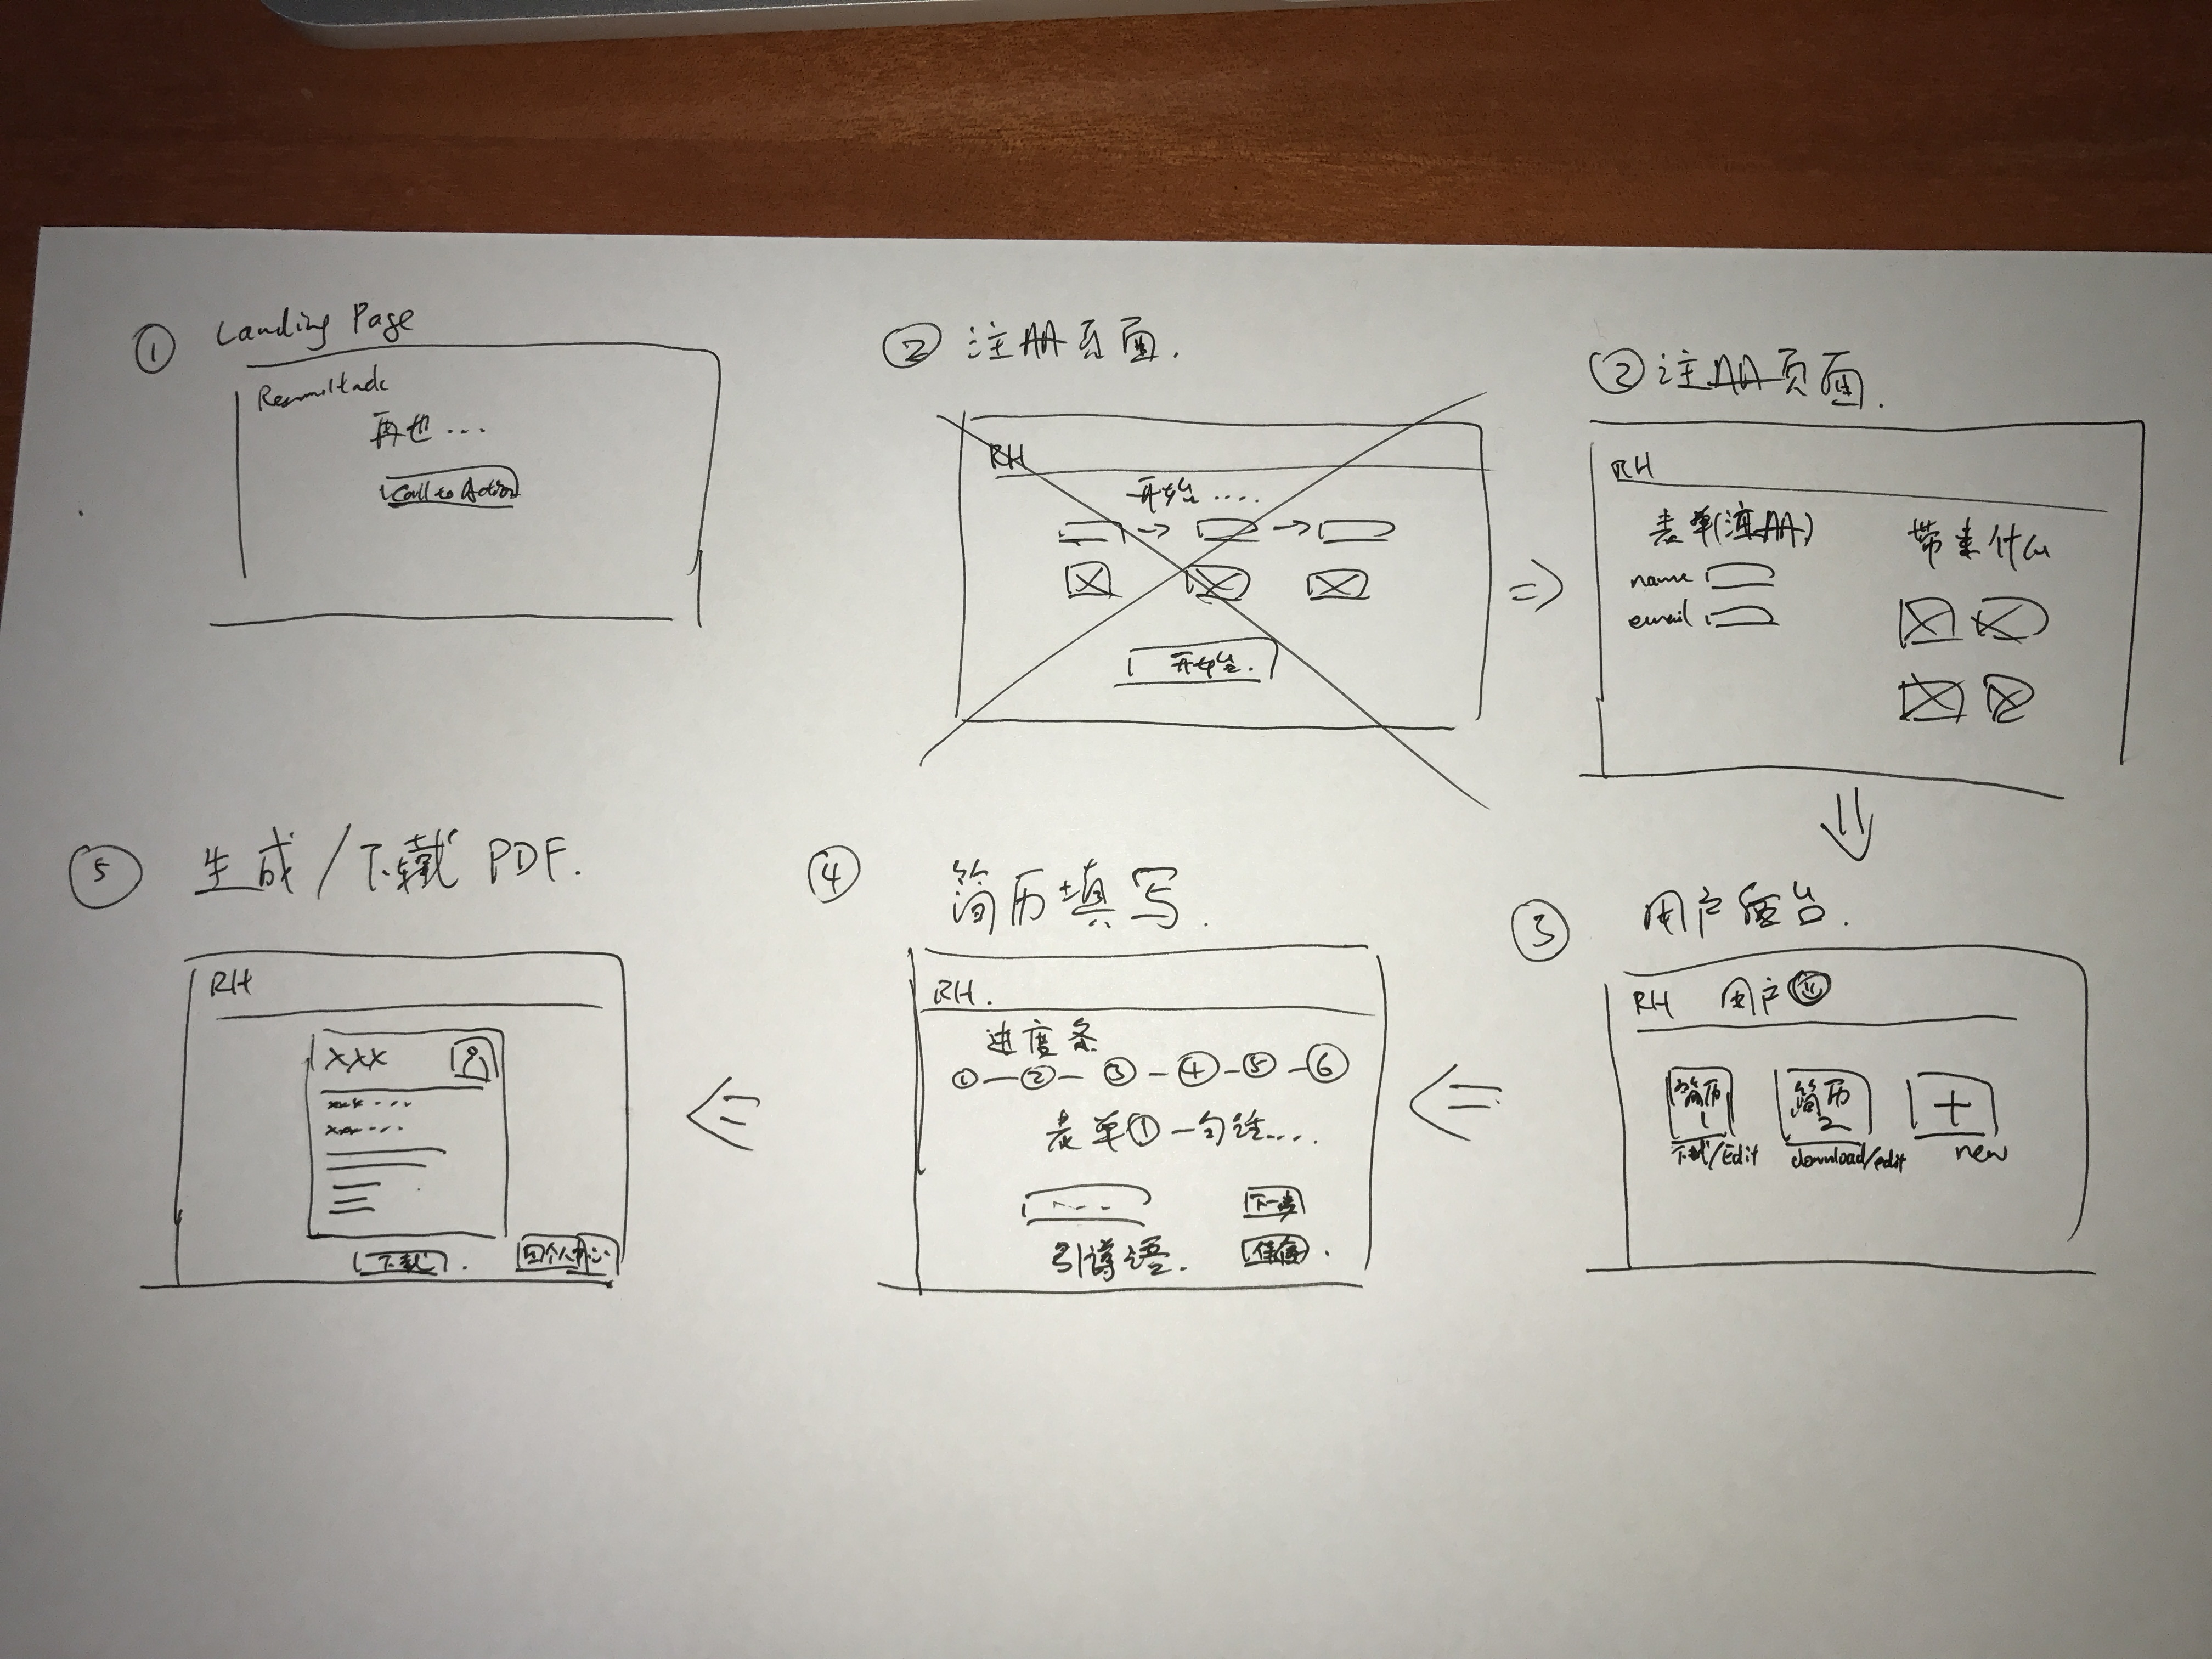 ① Landing Page
再也...
Call to Action
② 注册页面.
RH
开始....
开始.
② 注册页面.
RH
表单(注册)
name
email
带来什么
③ 用户后台.
RH 用户
简历1
下载/Edit
简历2
download/edit
+
new
④ 简历填写.
RH.
进度条
①—②—③—④—⑤—⑥
表单①一句话....
...
引导语.
下一步
保存.
⑤ 生成/下载 PDF.
RH
XXX
下载.
回个人中心